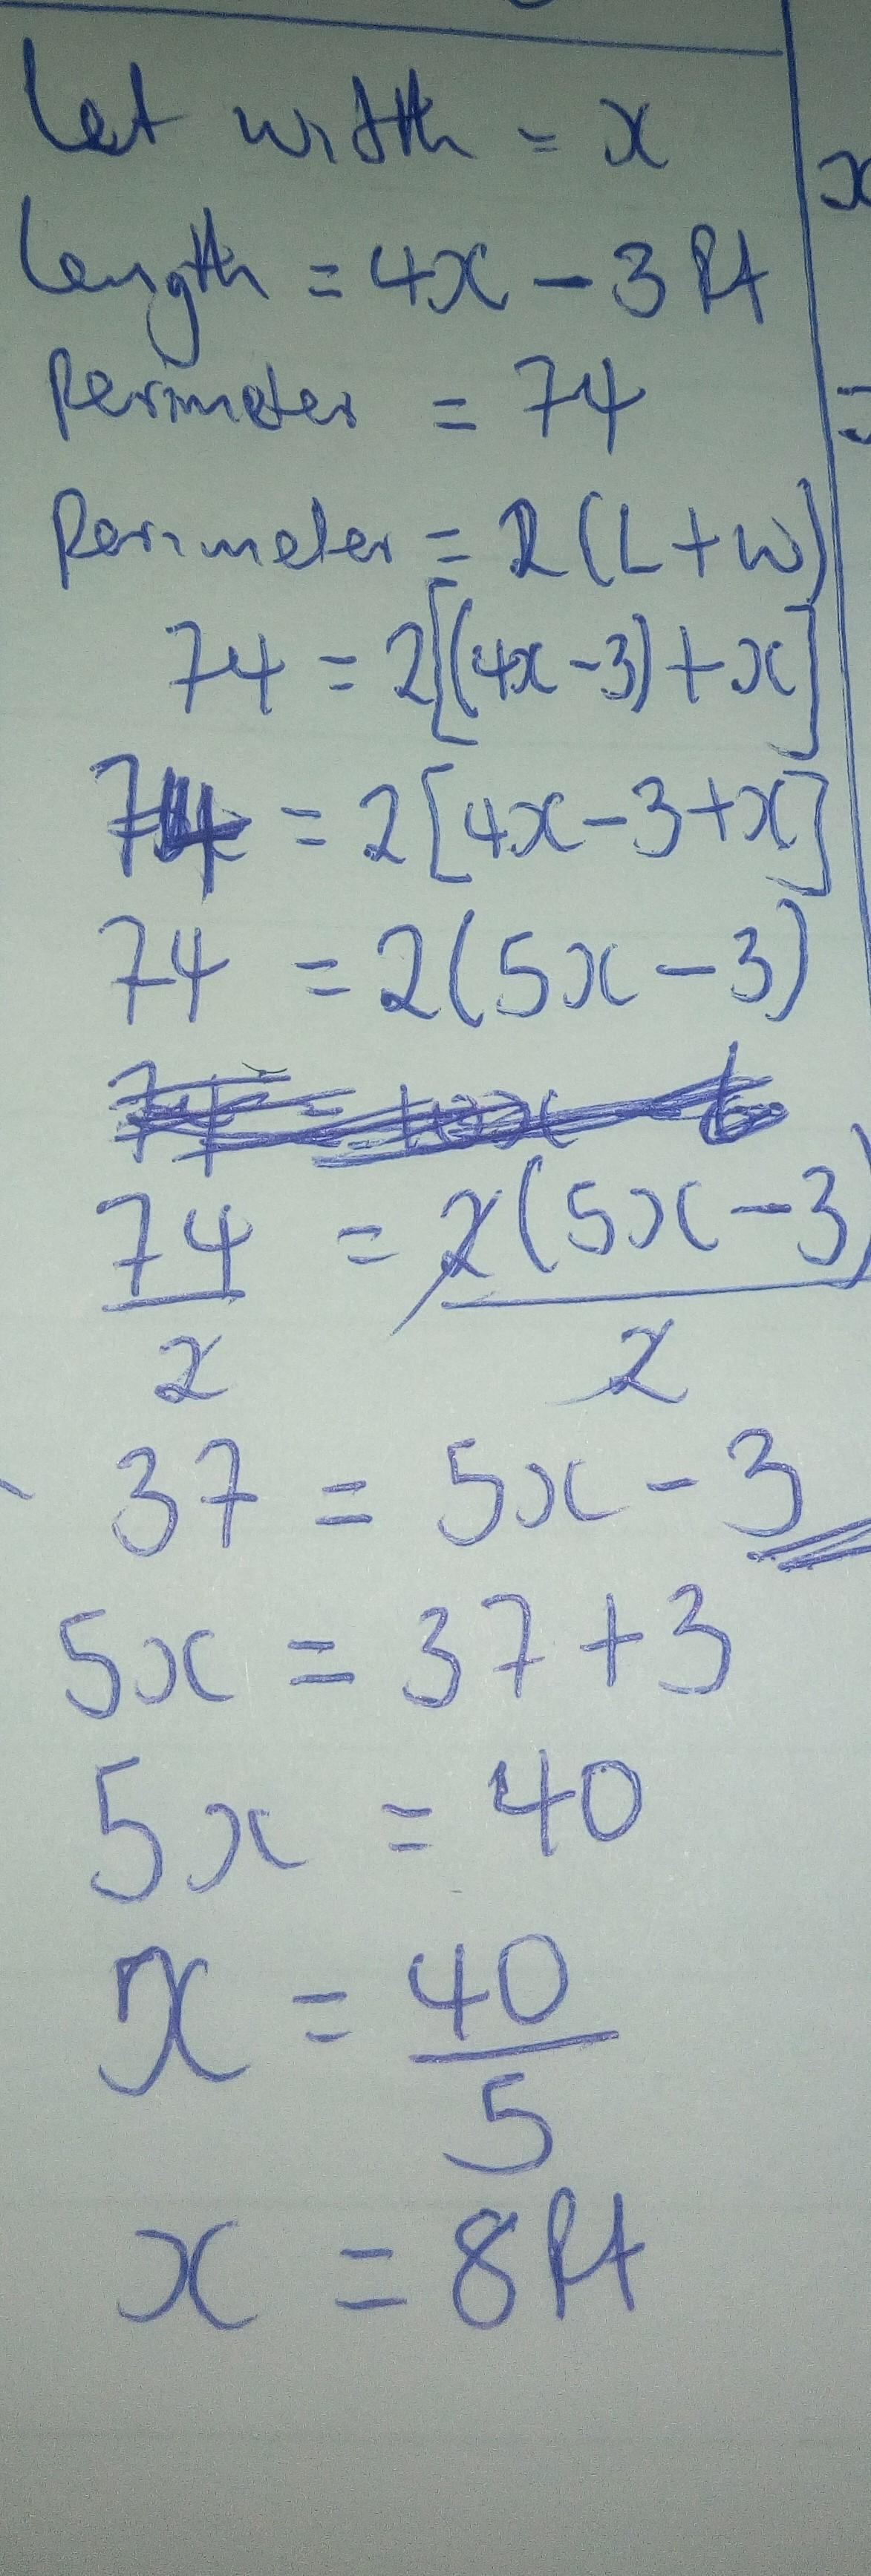 Let width = x
length = 4x - 3ft
Perimeter = 74
Perimeter = 2(L+W)
74 = 2[(4x-3)+x]
74 = 2[4x-3+x]
74 = 2(5x-3)
74 = 10x - 6
74 = 2(5x-3)
2 2
37 = 5x - 3
5x = 37+3
5x = 40
x = 40
5
x = 8ft
x
=